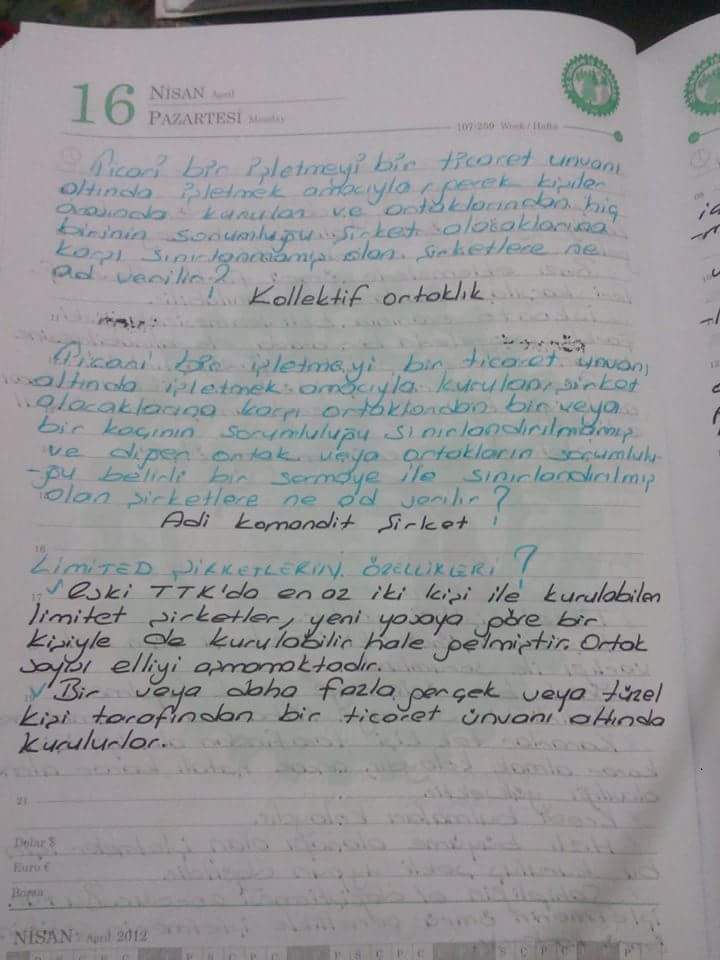 16 NİSAN April
PAZARTESİ Monday
107/259 Week / Hafta
Ticari bir işletmeyi bir ticaret unvanı
altında işletmek amacıyla, gerek kişiler
arasında kurulan ve ortaklarından hiç
birinin sorumluğu şirket alacaklarına
karşı sınırlanmamış olan şirketlere ne
ad verilir?
Kollektif ortaklık
Ticari bir işletmeyi bir ticaret unvanı
altında işletmek amacıyla kurulan, şirket
alacaklarına karşı ortaklardan bir veya
bir kaçının sorumluluğu sınırlandırılmamış
ve diğer ortak veya ortakların sorumlulu-
-ğu belirli bir sermaye ile sınırlandırılmış
olan şirketlere ne ad verilir?
Adi komandit şirket
LİMİTED ŞİRKETLERİN ÖZELLİKLERİ?
Eski TTK'da en az iki kişi ile kurulabilen
limitet şirketler, yeni yasaya göre bir
kişiyle de kurulabilir hale gelmiştir. Ortak
sayısı elliyi aşmamaktadır.
Bir veya daha fazla gerçek veya tüzel
kişi tarafından bir ticaret ünvanı altında
kurulurlar.
21
Dolar $
Euro €
Borsa
NİSAN April 2012